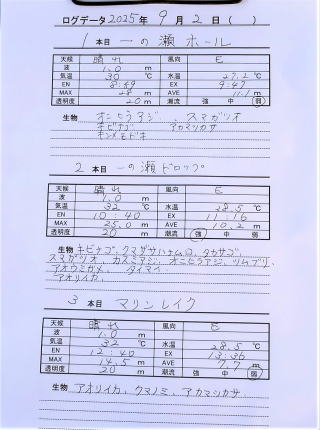 ログデータ2025年 9月 2日 ( )
1本目 一の瀬ホール
天候 晴れ 風向 E
波 1.0 m
気温 30 ℃ 水温 27.2 ℃
EN 8:49 EX 9:47
MAX 28 m AVE 11.1 m
透明度 20 m 潮流 強 中 弱
生物 オニヒラアジ、スマガツオ
キビナゴ アカマツカサ
キンメモドキ
2本目 一の瀬ドロップ
天候 晴れ 風向 E
波 1.0 m
気温 32 ℃ 水温 28.5 ℃
EN 10:40 EX 11:16
MAX 25.0 m AVE 10.2 m
透明度 20 m 潮流 強 中 弱
生物 キビナゴ、クマザサハナムロ、タカサゴ、
スマガツオ、カスミアジ、オニヒラアジ、ツムブリ、
アオウミガメ、タイマイ、
アオリイカ、
3本目 マリンレイク
天候 晴れ 風向 E
波 1.0 m
気温 32 ℃ 水温 28.5 ℃
EN 12:40 EX 13:36
MAX 14.5 m AVE 7.7 m
透明度 20 m 潮流 強 中 弱
生物 アオリイカ、クマノミ、アカマツカサ、